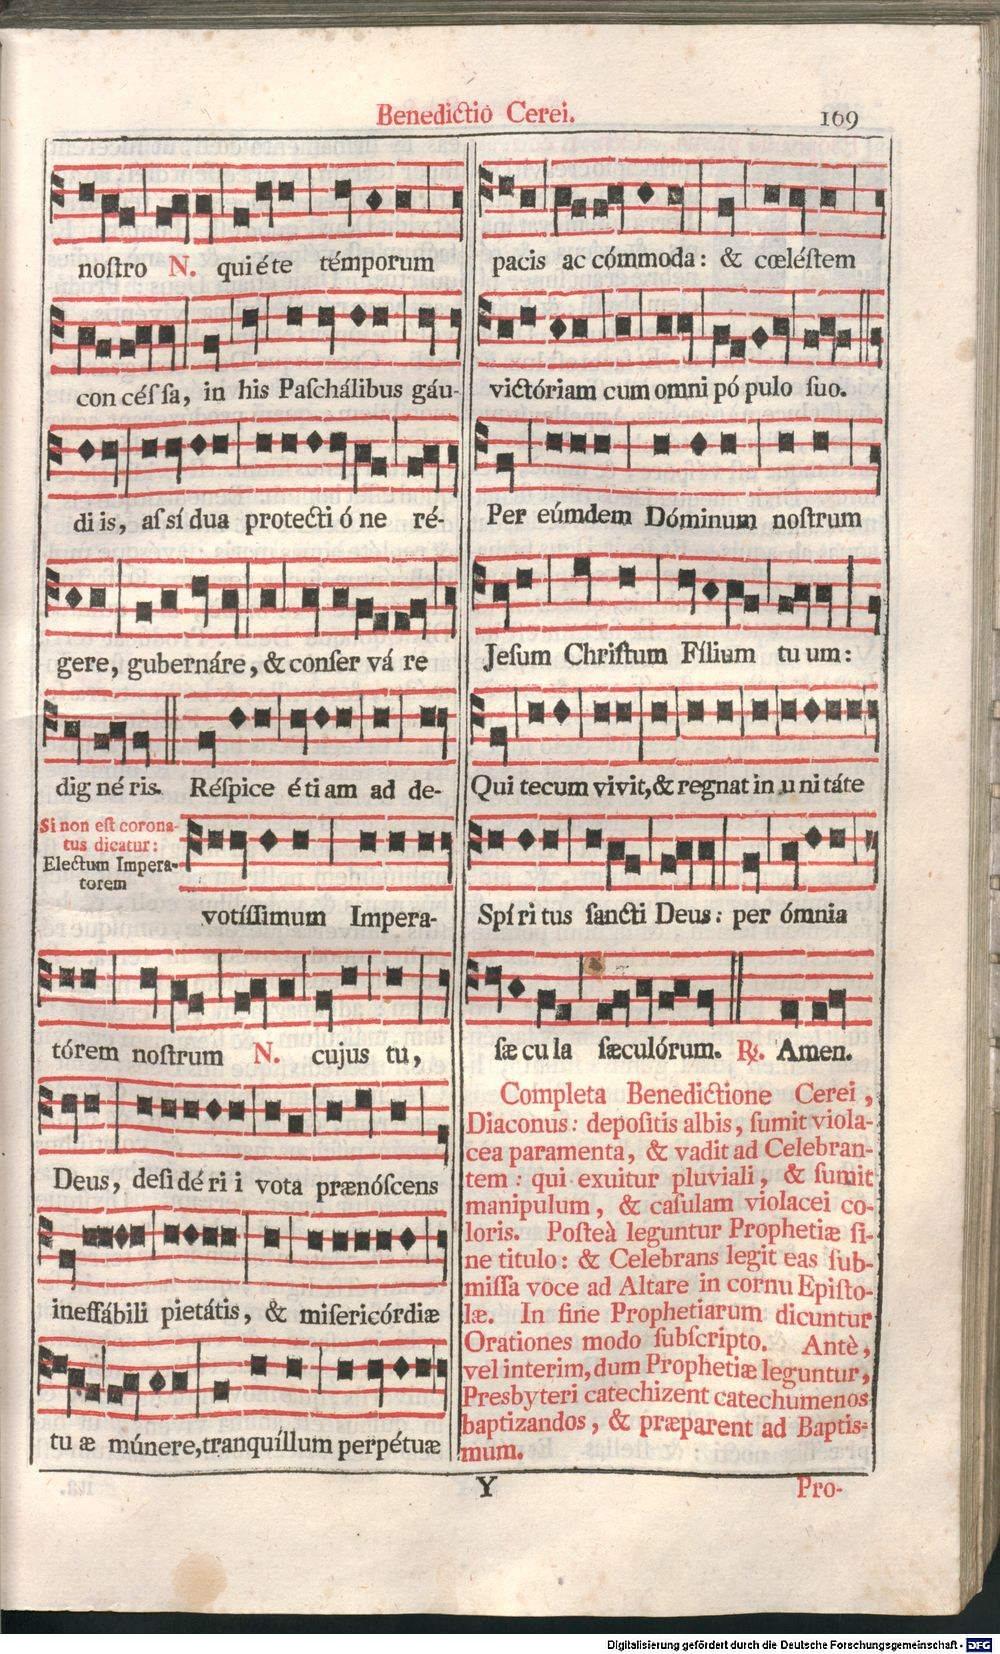 Benedictio Cerei.
169
noſtro N. quiéte témporum
con céſ ſa, in his Paſchálibus gáu-
di is, aſ sí dua protecti ó ne ré-
gere, gubernáre, & conſer vá re
dig né ris. Réſpice é ti am ad de-
Si non eſt corona-
tus dicatur:
Electum Impera-
torem
votíſſimum Impera-
tórem noſtrum N. cujus tu,
Deus, deſi dé ri i vota prænóſcens
ineffábili pietátis, & miſericórdiæ
tu æ múnere, tranquíllum perpétuæ
pacis ac cómmoda: & cœléſtem
victóriam cum omni pó pulo ſuo.
Per eúmdem Dóminum noſtrum
Jeſum Chriſtum Fílium tu um:
Qui tecum vivit, & regnat in u ni táte
Spí ri tus ſancti Deus: per ómnia
ſæ cu la ſæculórum. ℟. Amen.
Completa Benedictione Cerei,
Diaconus: depoſitis albis, ſumit viola-
cea paramenta, & vadit ad Celebran-
tem: qui exuitur pluviali, & ſumit
manipulum, & caſulam violacei co-
loris. Poſteà leguntur Prophetiæ ſi-
ne titulo: & Celebrans legit eas ſub-
miſſa voce ad Altare in cornu Epiſto-
læ. In fine Prophetiarum dicuntur
Orationes modo ſubſcripto. Antè,
vel interim, dum Prophetiæ leguntur,
Presbyteri catechizent catechumenos
baptizandos, & præparent ad Baptis-
mum.
Y
Pro-
Digitalisierung gefördert durch die Deutsche Forschungsgemeinschaft - DFG